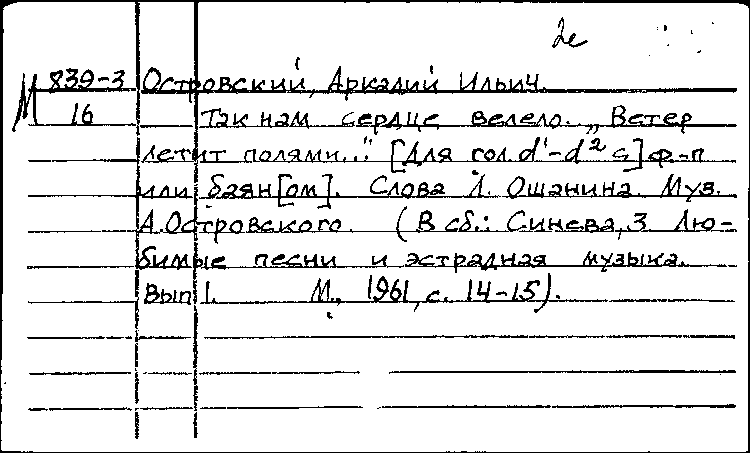 2е
М 839-3 Островский, Аркадий Ильич.
16 Так нам сердце велело. „Ветер
летит полями..." [Для гол. d¹-d² с] ф-п
или баян[ом]. Слова Л. Ошанина. Муз.
А.Островского. (В сб.: Синева, З Лю-
бимые песни и эстрадная музыка.
Вып 1. М., 1961, с. 14-15).